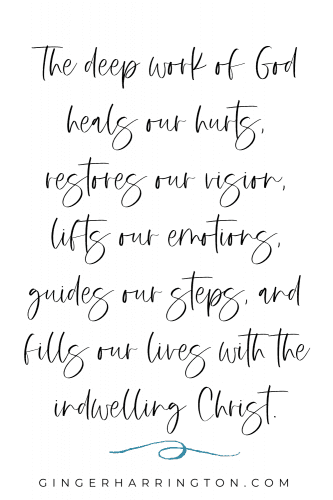 The deep work of God
heals our hurts,
restores our vision,
lifts our emotions,
guides our steps, and
fills our lives with the
indwelling Christ.
GINGERHARRINGTON.COM